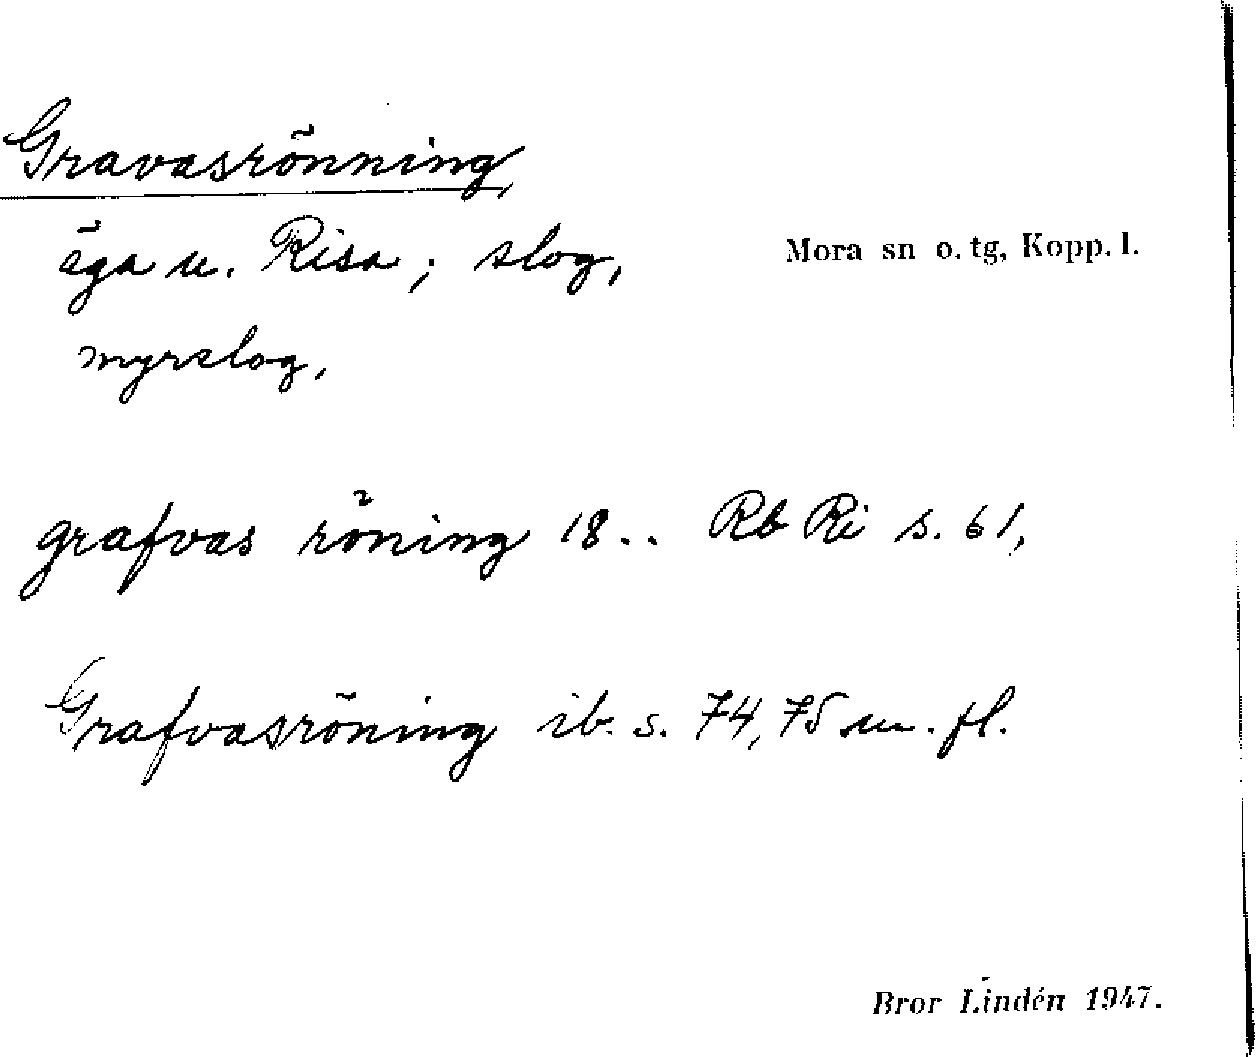 Gravasrönning,
äga u. Risa; slog,
Mora sn o. tg, Kopp. l.
myrslog,
grafvas röning 18.. Rb Ri s. 61,
Grafvasröning ib. s. 74, 75 m. fl.
Bror Lindén 1947.